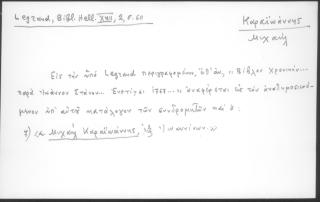 Legrand, Bibl. Hell. XVIII, 2, σ. 60
Καραϊωάννης
Μιχαήλ
Εἰς τὴν ὑπὸ Legrand περιγραφομένην, ὑπ' ἀρ., "Βίβλον Χρονικήν...
παρὰ Ἰωάννου Στάνου... Ἐνετίησι 1767..." ἀναφέρεται εἰς τὸν ἀναδημοσιευό-
μενον ὑπ' αὐτοῦ κατάλογον τῶν συνδρομητῶν καὶ ὁ:
"Μιχαὴλ Καραϊωάννης, ἐξ Ἰωαννίνων."